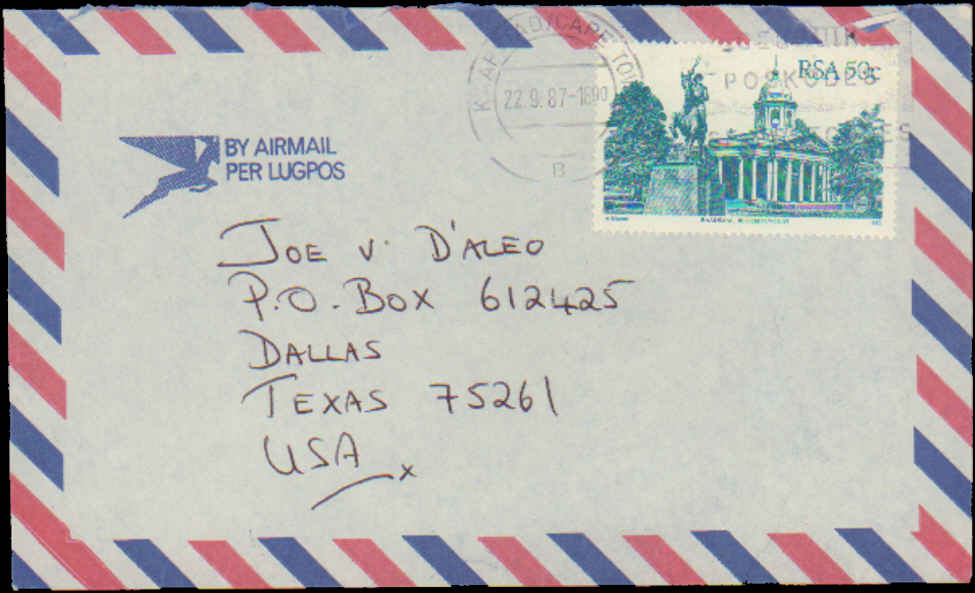 RSA 50c
22.9.87-1800
POSKODES
B
BY AIRMAIL
PER LUGPOS
JOE V. D'ALEO
P.O. BOX 612425
DALLAS
TEXAS 75261
USA
x